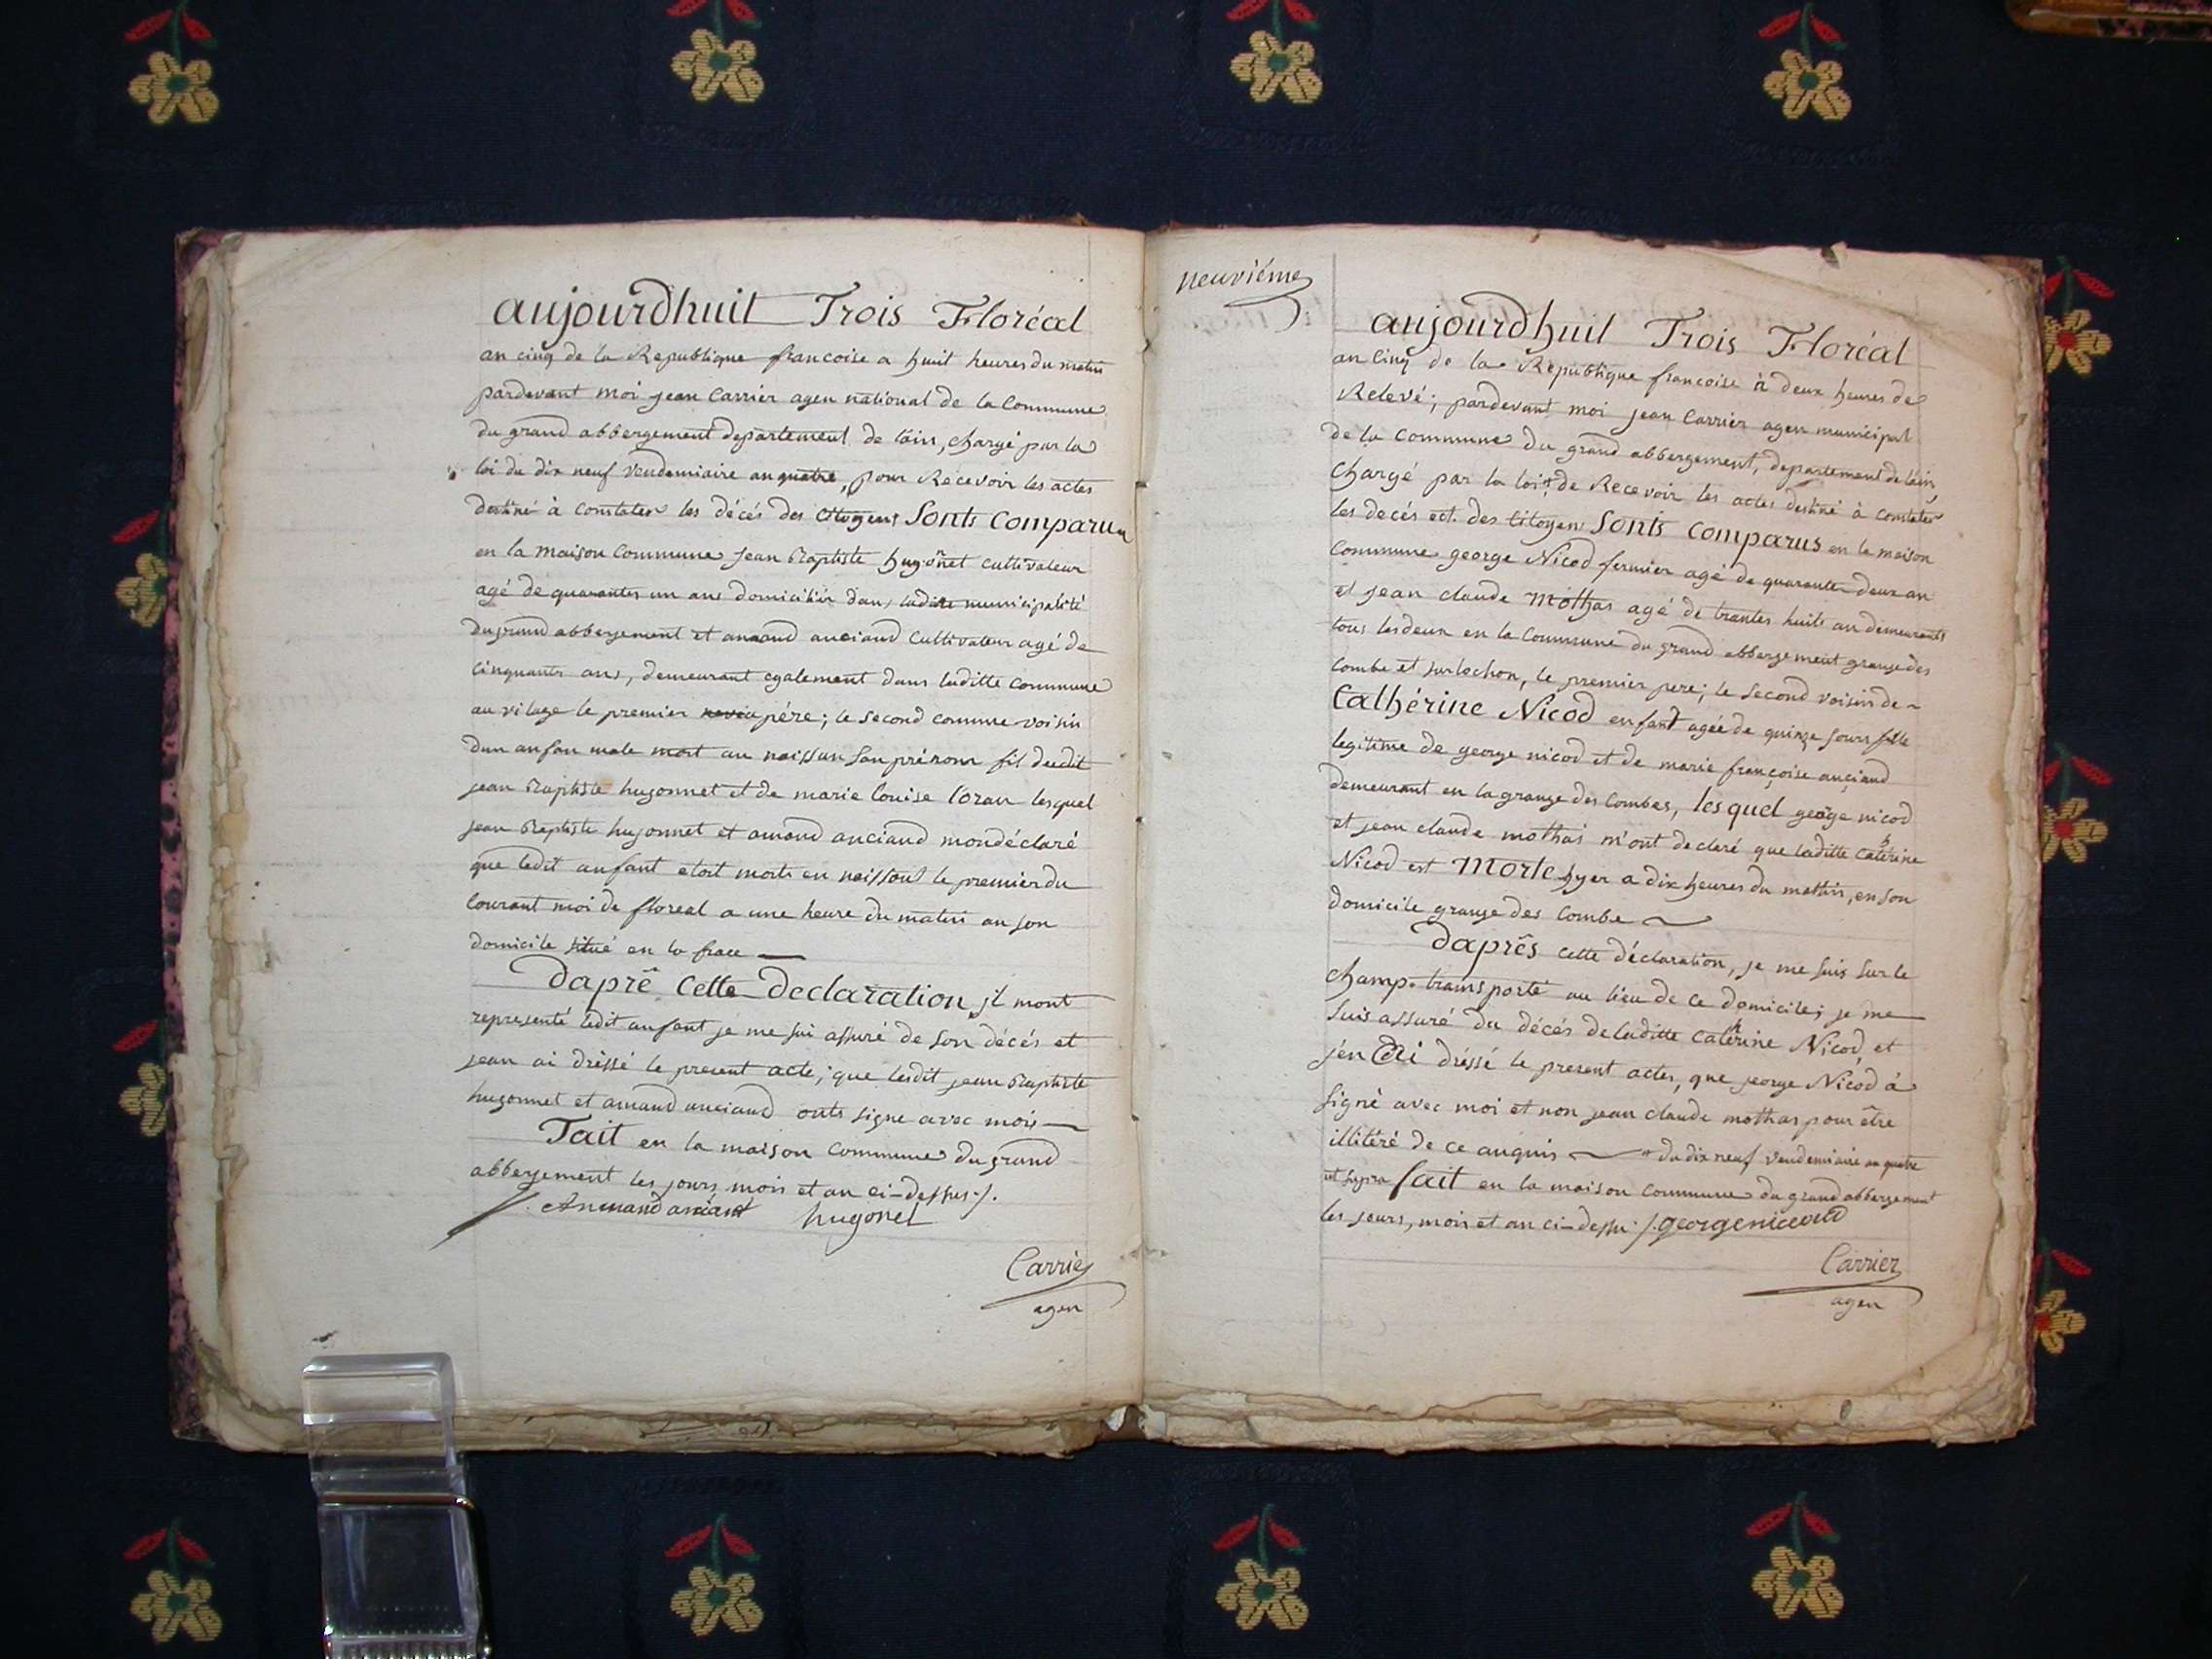 aujourdhuit Trois Floréal
an cinq de la Republique francoise a huit heures du matin
pardevant moi jean Carrier agen national de la Commune
du grand abbergement departement de lain, chargé par la
loi du dix neuf vendemiaire an quatre, pour Recevoir les actes
destiné à constater les décés des Citoyens Sonts Comparu
en la maison Commune jean Baptiste hugonnet cultivateur
agé de quarantes un ans domicilié dans ladite municipalité
du grand abbergement et amand anciand cultivateur agé de
cinquante ans, demeurant egalement dans laditte commune
au vilage le premier père; le second comme voisin
dun anfan male mort au naissan san prénom fil dudit
jean Baptiste hugonnet et de marie louise loran lesquel
jean Baptiste hugonnet et amand anciand mondéclaré
que ledit anfant etoit morts en naissant le premier du
courant moi de floreal a une heure du matin an son
domicile situé en la frace
daprê Cette Declaration il mont
representé ledit anfant je me sui assuré de son décés et
jean ai dréssé le present acte; que lesdit jean Baptiste
hugonnet et amand anciand onts signe avec mois
Fait en la maison commune du grand
abbergement les jours mois et an ci-dessus /.
Anmand anciant hugonet
Carrier
agen
neuviéme
aujourdhuit Trois Floréal
an Cinq de la Republique francoise à deux heures de
Relevé; pardevant moi jean Carrier agen municipal
de la Commune du grand abbergement, departement de lain,
chargé par la loi + de Recevoir les actes destiné à constater
les decés ect. des Citoyen Sonts Comparus en la maison
Commune george Nicod fermier agé de quarante deux an
et jean claude Mothas agé de trantes huits an demeurants
tous les deux en la Commune du grand abbergement grange des
combe et sur lochon, le premier pere; le second voisin de
Cathérine Nicod enfant agée de quinze jours fille
legitime de george nicod et de marie françoise anciand
demeurant en la grange des Combes, lesquel george nicod
et jean claude mothas m'ont declaré que laditte catherine
Nicod est Morte hyer a dix heures du mattin, en son
domicile grange des Combe
daprês cette déclaration, je me suis sur le
champ transporté au lieu de ce domicile; je me
suis assuré du décés de laditte catherine Nicod, et
j'en ai dréssé le present actes, que george Nicod à
signé avec moi et non jean claude mothas pour être
illitéré de ce anquis + du dix neuf vendemiaire an quatre
ut supra fait en la maison commune du grand abbergement
les jours, mois et an ci-dessu /. george niccoud
Carrier
agen